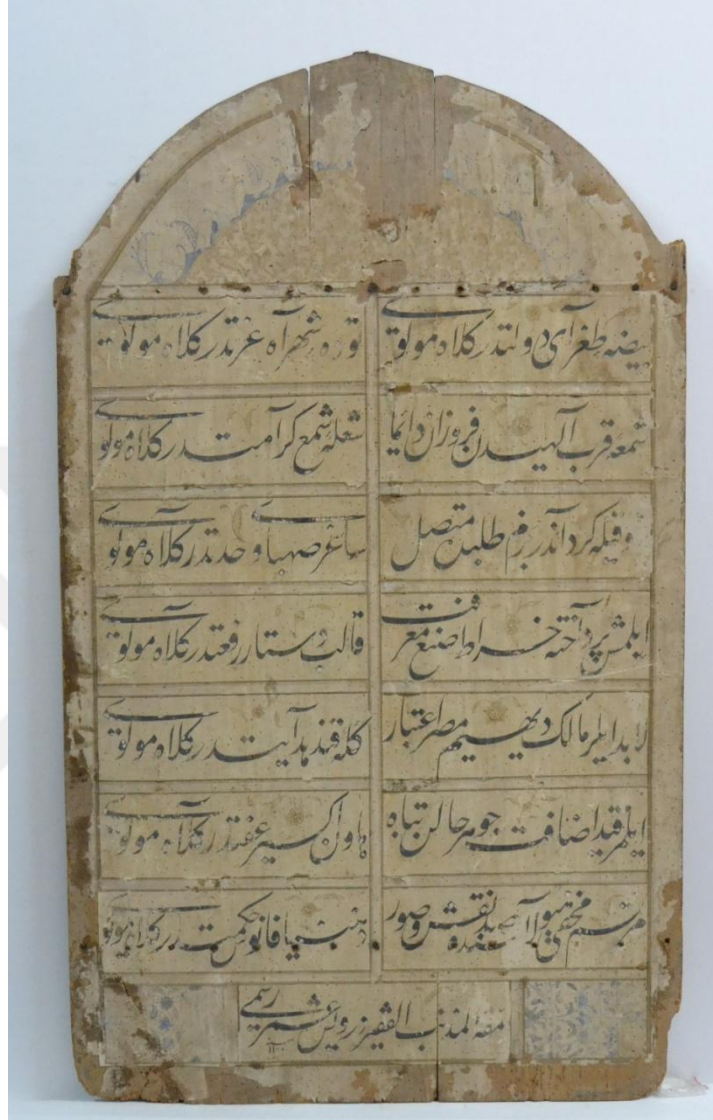 بیضه طغرای دولتدر کلاه مولوی توره شهراه عزتدر کلاه مولوی
شمعه قرب الهیدن فروزان دائما شعله شمع کرامتدر کلاه مولوی
کردآندر بزم طلبده متصل ساغر صهبای وحدتدر کلاه مولوی
ایلمش پرداخته خراط صنع معرفت قالب دستار رفعتدر کلاه مولوی
لابد ایلر مالک دیهیم مصر اعتبار کله قند هدایتدر کلاه مولوی
ایلمز قید اضافت جوهر حالن تباه هاون اکسیر عفتدر کلاه مولوی
مرتسم هیولا نقش و صور فانوس حکمتدر کلاه مولوی
نمقه المذنب الفقیر درویش رسمی